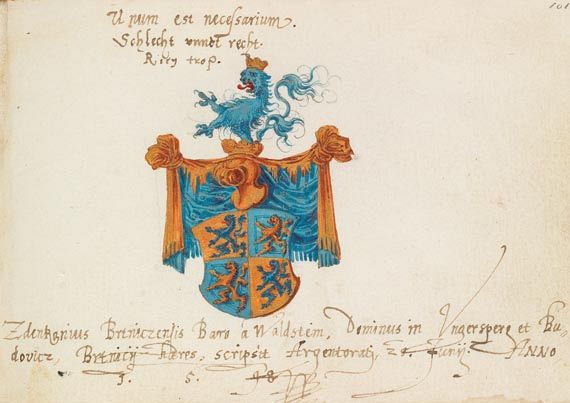 101
Unum est necessarium.
Schlecht unndt recht.
trop.
Zdenkonius Brtniczensis Baro à Waldstein, Dominus in Ungersperg et Bu-
dovicz, Brtnicij Hæres, scripsit Argentorati, 21. Junij. ANNO
1. 5.